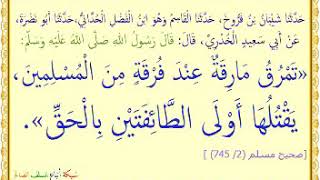 حَدَّثَنَا شَيْبَانُ بْنُ فَرُّوخَ، حَدَّثَنَا الْقَاسِمُ وَهُوَ ابْنُ الْفَضْلِ الْحُدَّانِيُّ، حَدَّثَنَا أَبُو نَضْرَةَ،
عَنْ أَبِي سَعِيدٍ الْخُدْرِيِّ، قَالَ: قَالَ رَسُولُ اللَّهِ صَلَّى اللَّهُ عَلَيْهِ وَسَلَّمَ:
«تَمْرُقُ مَارِقَةٌ عِنْدَ فُرْقَةٍ مِنَ الْمُسْلِمِينَ،
يَقْتُلُهَا أَوْلَى الطَّائِفَتَيْنِ بِالْحَقِّ».
[صحيح مسلم (2/ 745) ]
شبكة أتباع السلف الصالح